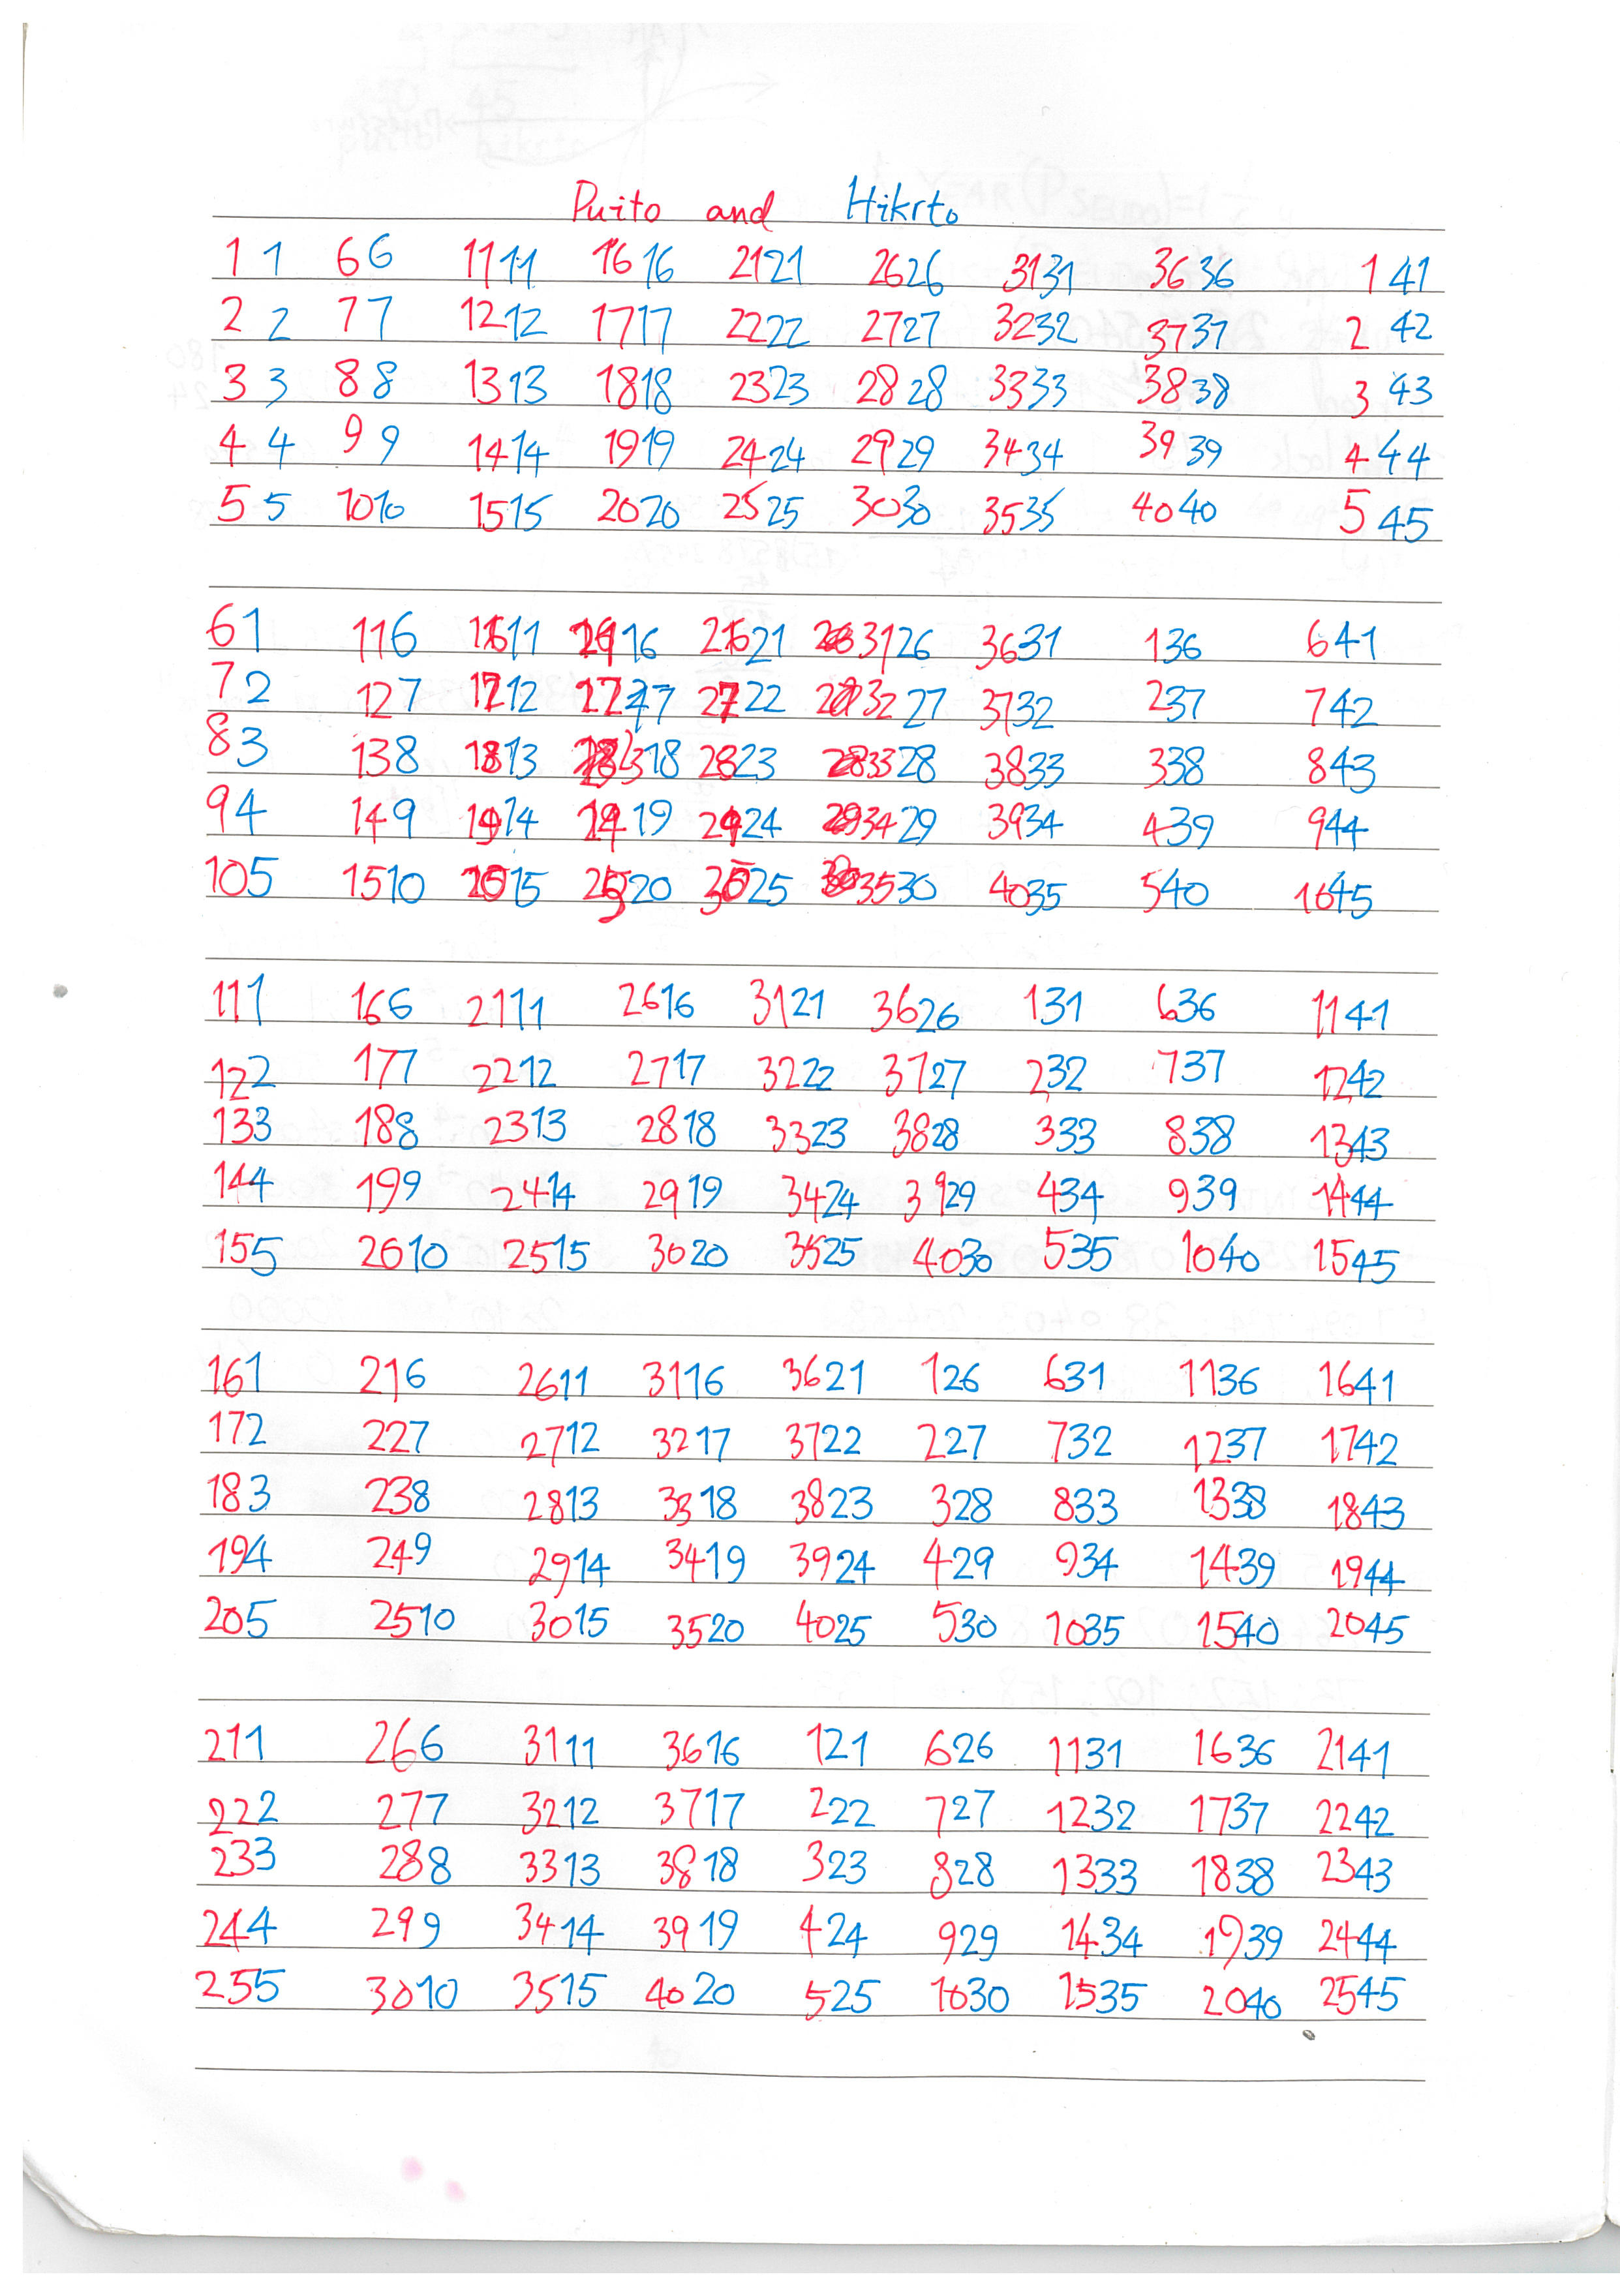 Puito and Hikrto
1 1 6 6 1111 1616 2121 2626 3131 3636 1 41
2 2 7 7 1212 1717 2222 2727 3232 3737 2 42
3 3 8 8 1313 1818 2323 2828 3333 3838 3 43
4 4 9 9 1414 1919 2424 2929 3434 3939 4 44
5 5 1010 1515 2020 2525 3030 3535 4040 5 45
61 116 1611 16 2621 3126 3631 136 641
72 127 1712 2722 3227 3732 237 742
83 138 1813 18 2823 3328 3833 338 843
94 149 1914 19 2924 3429 3934 439 944
105 1510 2015 2520 3025 3530 4035 540 1045
111 166 2111 2616 3121 3626 131 636 1141
122 177 2212 2717 3222 3727 232 737 1242
133 188 2313 2818 3323 3828 333 838 1343
144 199 2414 2919 3424 3929 434 939 1444
155 2010 2515 3020 3525 4030 535 1040 1545
161 216 2611 3116 3621 126 631 1136 1641
172 227 2712 3217 3722 227 732 1237 1742
183 238 2813 3318 3823 328 833 1338 1843
194 249 2914 3419 3924 429 934 1439 1944
205 2510 3015 3520 4025 530 1035 1540 2045
211 266 3111 3616 121 626 1131 1636 2141
222 277 3212 3717 222 727 1232 1737 2242
233 288 3313 3818 323 828 1333 1838 2343
244 299 3414 3919 424 929 1434 1939 2444
255 3010 3515 4020 525 1030 1535 2040 2545